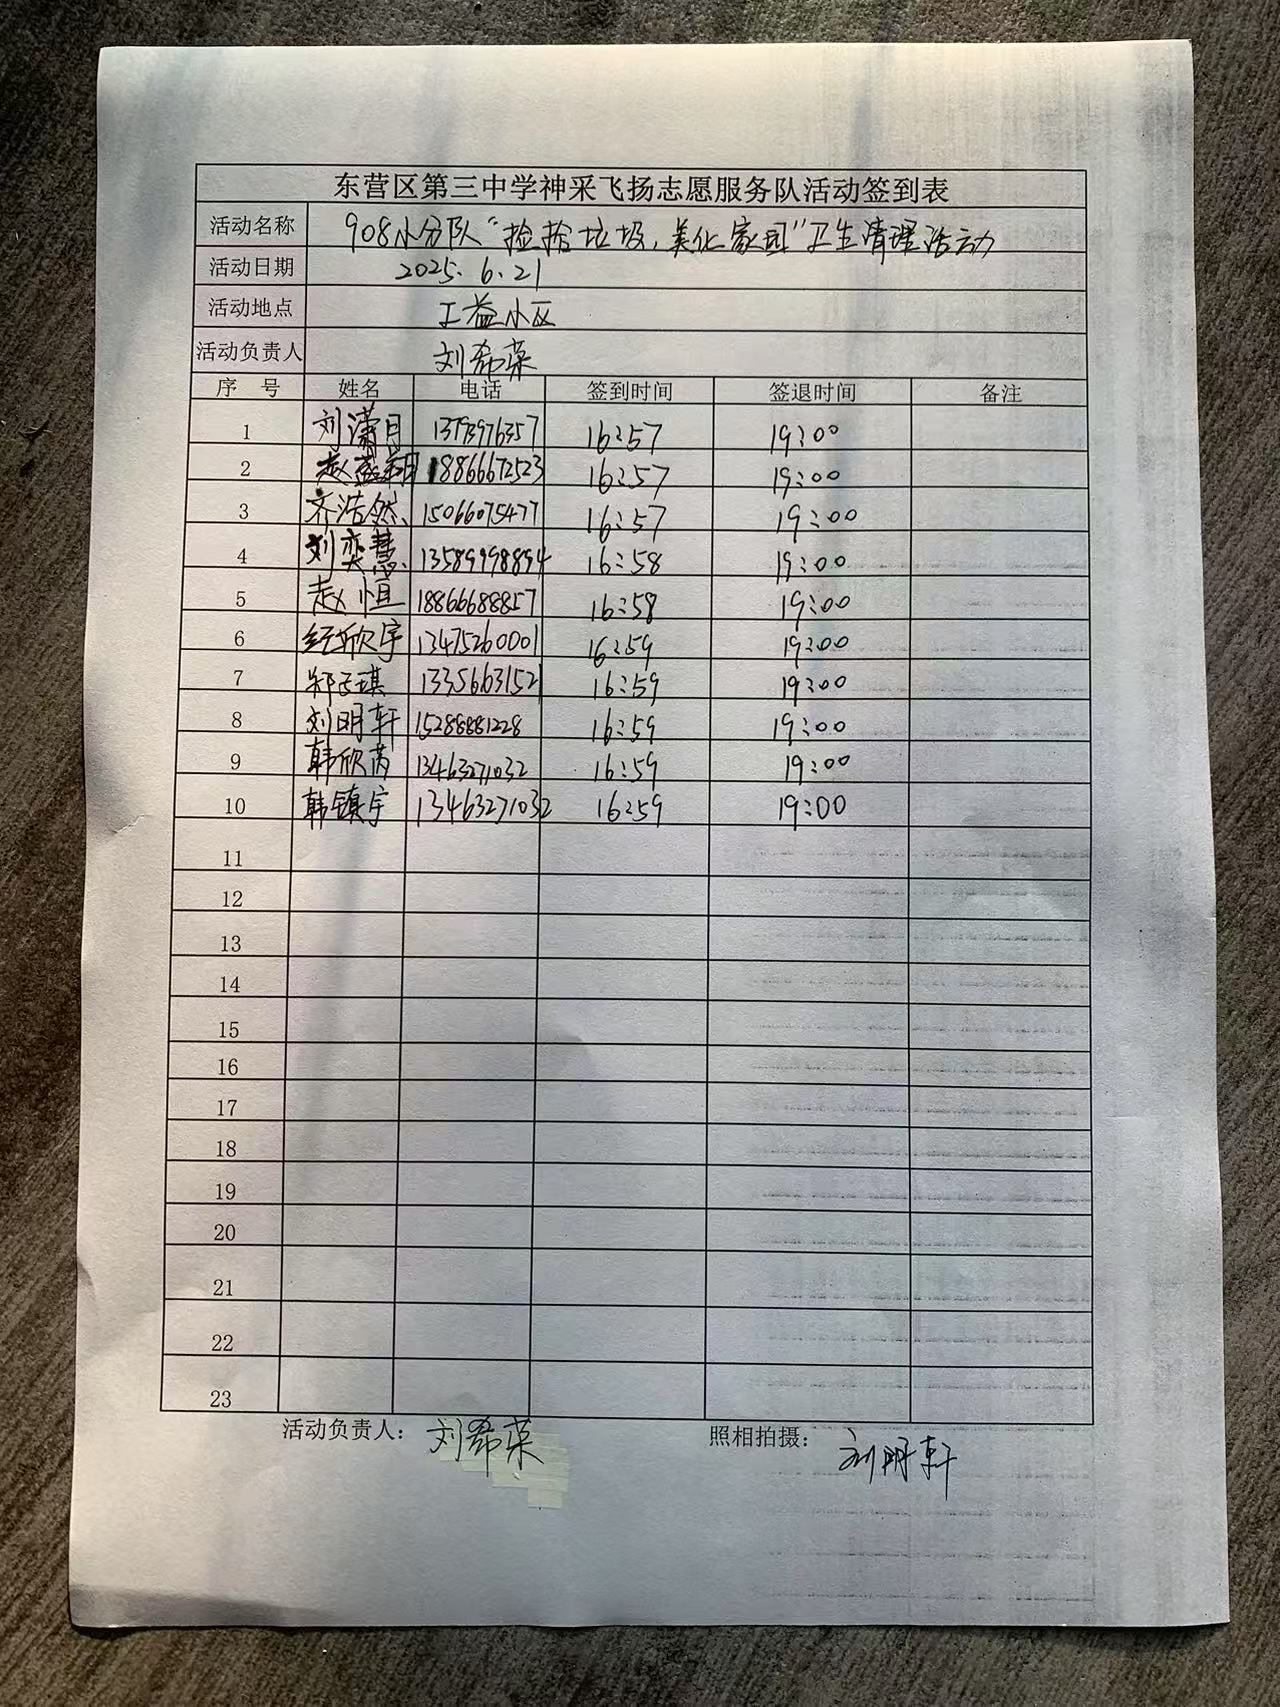 东营区第三中学神采飞扬志愿服务队活动签到表
活动名称 908小分队“捡拾垃圾，美化家园”卫生清理活动
活动日期 2025.6.21
活动地点 工益小区
活动负责人 刘希荣
序 号 姓名 电话 签到时间 签退时间 备注
1 刘潇月 16:57 19:00
2 18866672523 16:57 19:00
3 齐浩然 15066075477 16:57 19:00
4 刘奕慧 13589998894 16:58 19:00
5 赵恒 18866688857 16:58 19:00
6 经欣宇 13475260001 16:59 19:00
7 13356631521 16:59 19:00
8 刘明轩 15288881228 16:59 19:00
9 韩欣芮 13463271032 16:59 19:00
10 韩镇宇 13463271032 16:59 19:00
11
12
13
14
15
16
17
18
19
20
21
22
23
活动负责人：刘希荣 照相拍摄：刘明轩